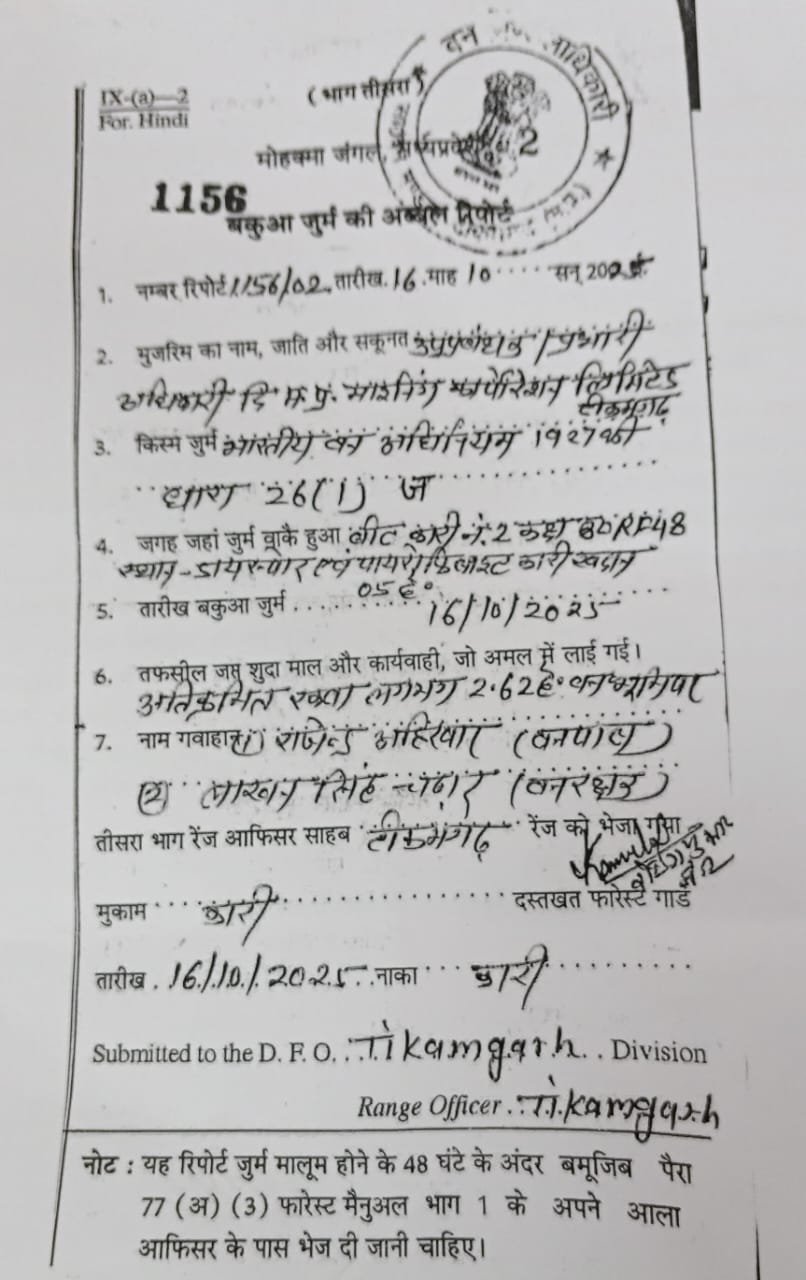 IX-(a)—2
For. Hindi
(भाग तीसरा)
वन
मोहकमा जंगल, मध्यप्रदेश 2
1156
बकुआ जुर्म की अव्वल रिपोर्ट
1. नम्बर रिपोर्ट 1156/02 तारीख 16 माह 10 सन् 200
2. मुजरिम का नाम, जाति और सकूनत उपप्रबंधक / प्रभारी
अधिकारी दि म.प्र. माइनिंग कार्पोरेशन लिमिटेड
टीकमगढ़
3. किस्म जुर्म भारतीय वन अधिनियम 1927 की
धारा 26(1) ज
4. जगह जहां जुर्म वाकै हुआ बीट कारी नं. 2 कक्ष
स्थान - डायस्पोर एवं पायरोफिलाइट कारी खदान
5. तारीख बकुआ जुर्म 16/10/2025
6. तफसील जप्त शुदा माल और कार्यवाही, जो अमल में लाई गई।
अतिक्रामित रकवा लगभग 2.62 हे. वनभूमि पर
7. नाम गवाहान (1) राजेन्द्र अहिरवार (वनपाल)
(2) लाखन सिंह चढ़ार (वनरक्षक)
तीसरा भाग रेंज आफिसर साहब टीकमगढ़ रेंज को भेजा गया
मुकाम कारी दस्तखत फारेस्ट गार्ड
तारीख 16/10/2025 नाका कारी
Submitted to the D. F. O. Tikamgarh Division
Range Officer Tikamgarh
नोट : यह रिपोर्ट जुर्म मालूम होने के 48 घंटे के अंदर बमूजिब पैरा
77 (अ) (3) फारेस्ट मैनुअल भाग 1 के अपने आला
आफिसर के पास भेज दी जानी चाहिए।